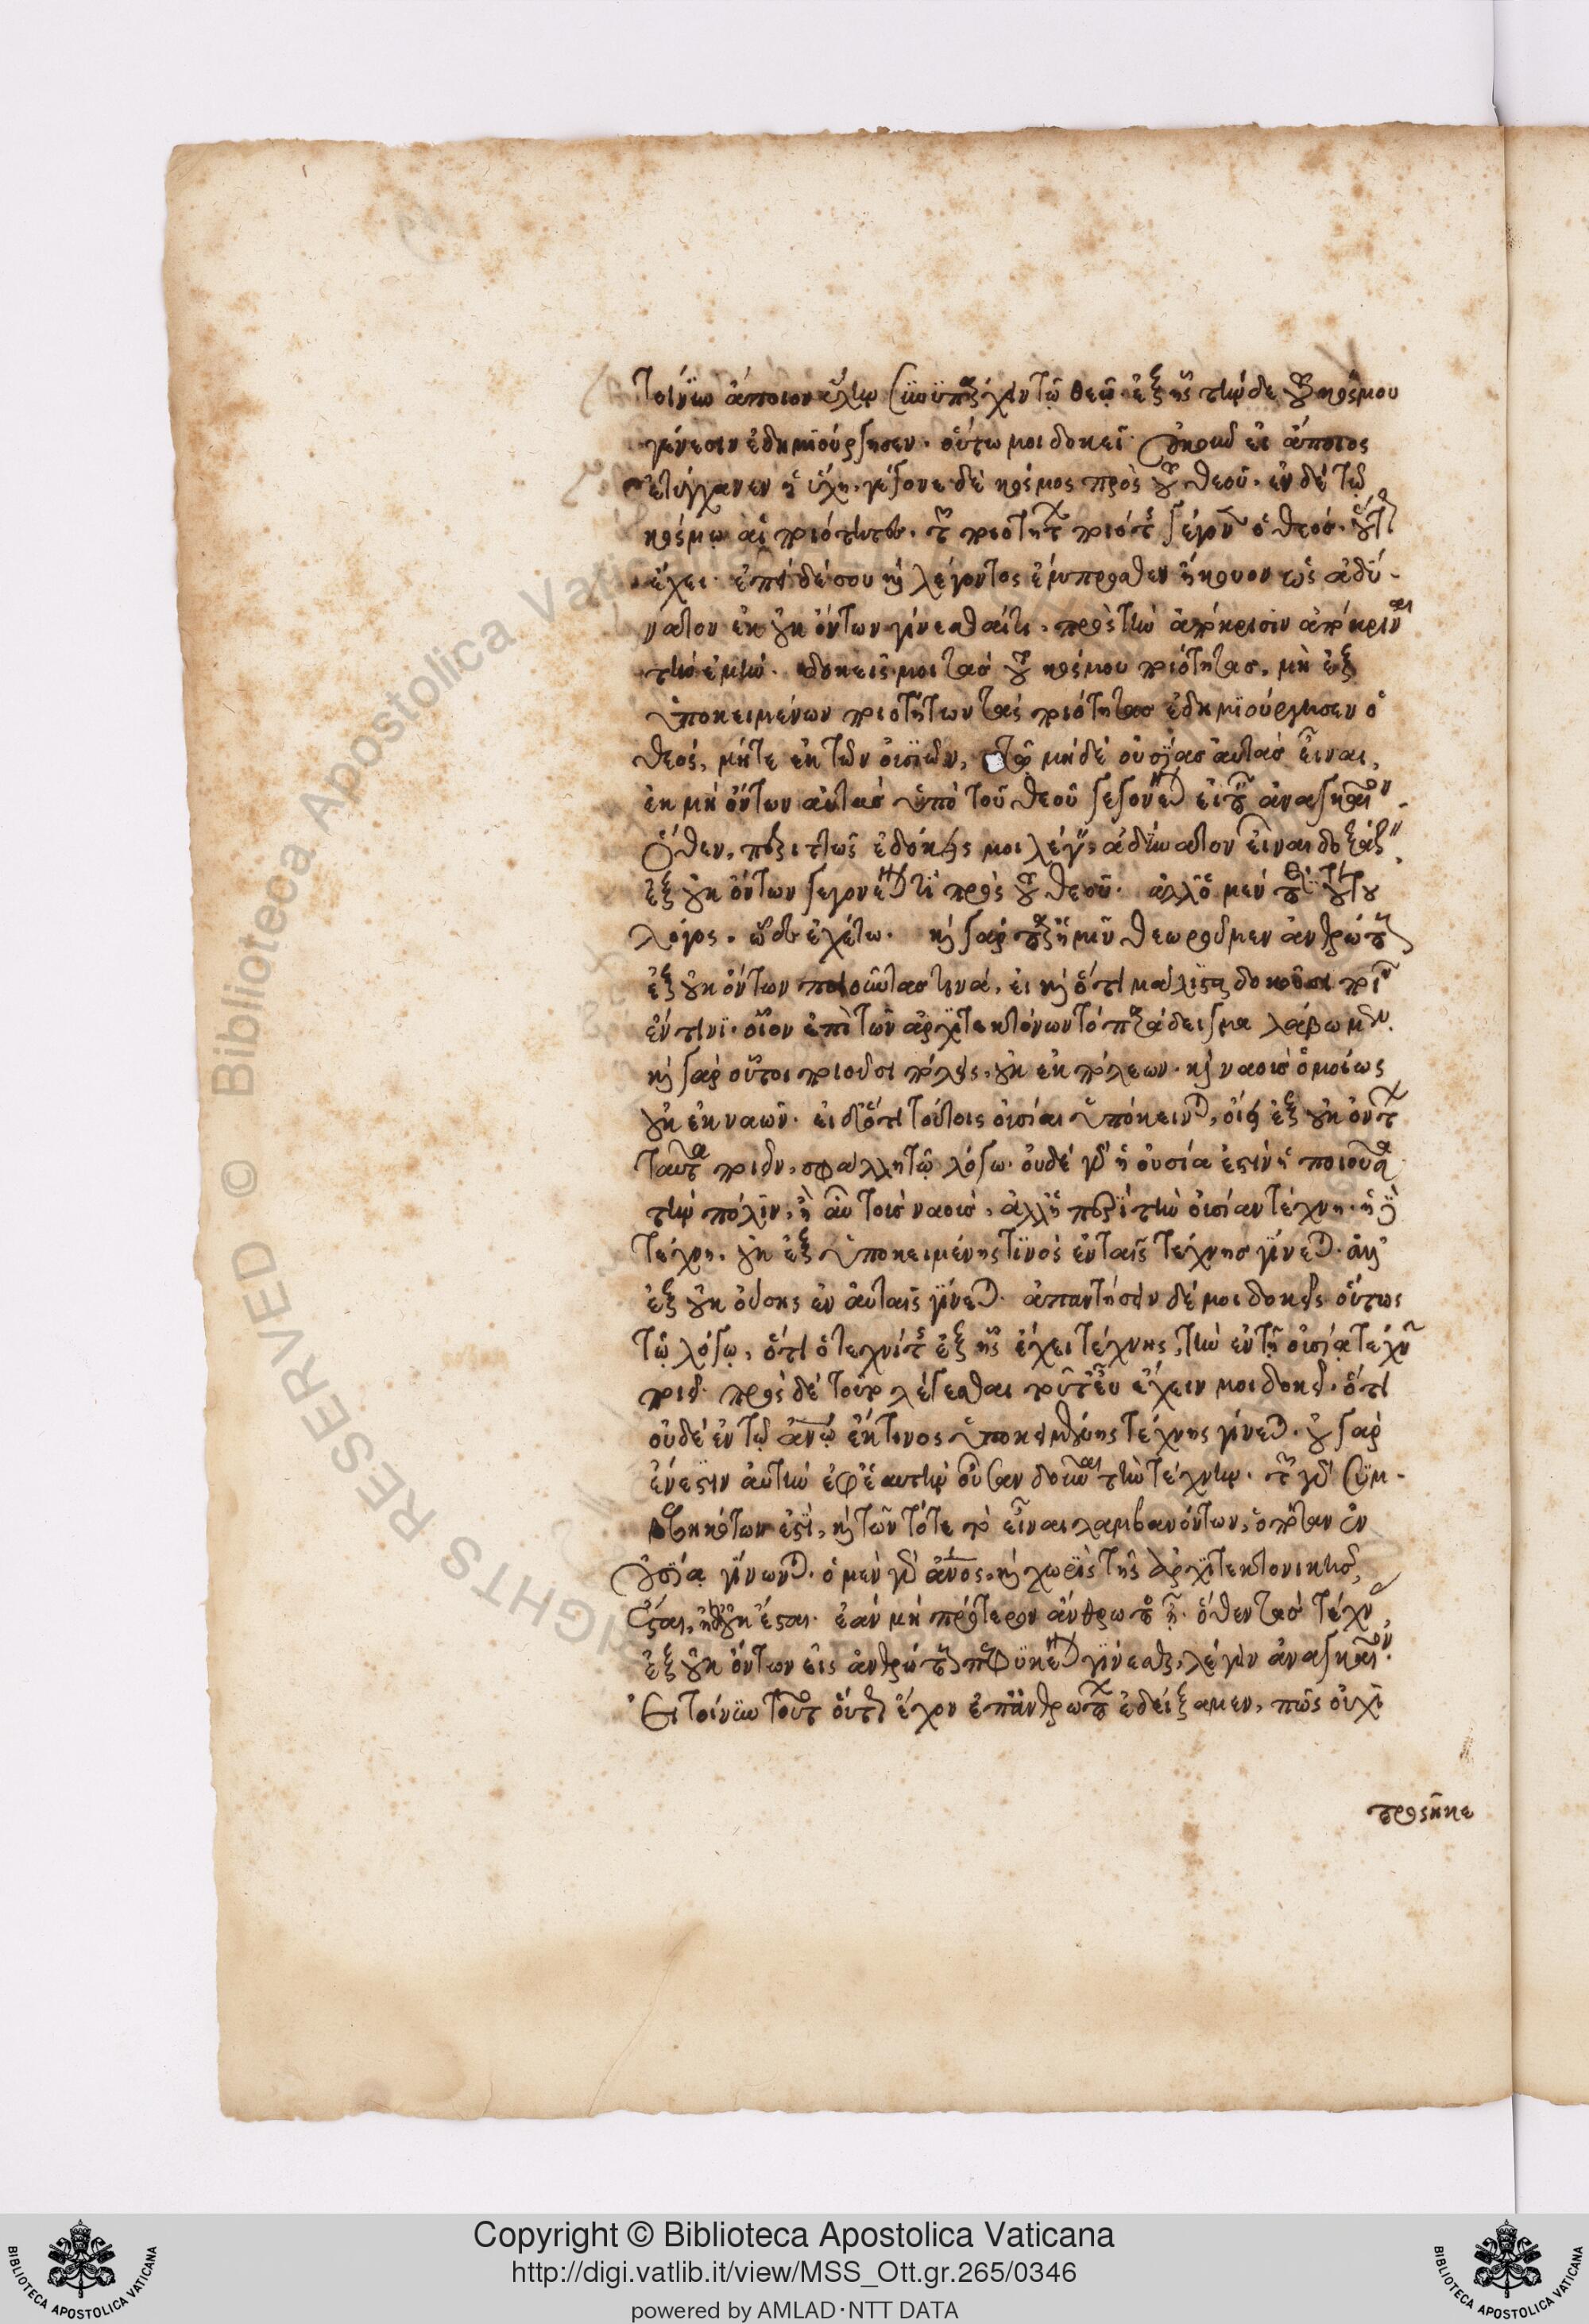 τοίνυν ἄποιον ὕλην συνυπάρχειν τῷ θεῷ ἐξ ἧς τήνδε τοῦ κόσμου
γένεσιν ἐδημιούργησεν. οὕτω μοι δοκεῖ. οὐκοῦν εἰ ἄποιος
ἐτύγχανεν ἡ ὕλη, γέγονε δὲ κόσμος πρὸς τοῦ θεοῦ. ἐν δὲ τῷ
κόσμῳ αἱ ποιότητες. τῶν ποιοτήτων ποιητὴς γέγονεν ὁ θεός. οὕτως
ἔχει. ἐπεὶ δέ σου καὶ λέγοντος ἔμπροσθεν ἤκουον ὡς ἀδύ-
νατον ἐκ οὐκ ὄντων γίνεσθαί τι, πρὸς τὴν ἀπόκρισιν ἀπόκριναι
τὴν ἐμήν. δοκεῖς μοι τὰς τοῦ κόσμου ποιότητας, μὴ ἐξ
ὑποκειμένων ποιοτήτων τὰς ποιότητας ἐδημιούργησεν ὁ
θεός, μήτε ἐκ τῶν οὐσιῶν, τῷ μηδὲ οὐσίας αὐτὰς εἶναι,
ἐκ μὴ ὄντων αὐτὰς ὑπὸ τοῦ θεοῦ γεγονέναι εἰπεῖν ἀναγκαῖον.
ὅθεν, περιττῶς ἐδόκεις μοι λέγειν, ἀδύνατον εἶναι δοξάζειν
ἐξ οὐκ ὄντων γεγονέναι τι πρὸς τοῦ θεοῦ. ἀλλ' ὁ μὲν περὶ τούτου
λόγος, ὧδε ἐχέτω. καὶ γὰρ παρ' ἡμῖν θεωροῦμεν ἀνθρώπους
ἐξ οὐκ ὄντων ποιοῦντας τινά, εἰ καὶ ὅτι μάλιστα δοκοῦσι ποιεῖν
ἔν τινι. οἷον ἐπὶ τῶν ἀρχιτεκτόνων τὸ παράδειγμα λάβωμεν.
καὶ γὰρ οὗτοι ποιοῦσι πόλεις, οὐκ ἐκ πόλεων. καὶ ναοὺς ὁμοίως
οὐκ ἐκ ναῶν. εἰ δ' ὅτι τούτοις οὐσίαι ὑπόκεινται, οἴει ἐξ οὐκ ὄντων
ταῦτα ποιεῖν, σφάλλῃ τῷ λόγῳ. οὐδὲ γὰρ ἡ οὐσία ἐστὶν ἡ ποιοῦσα
τὴν πόλιν, ἢ αὖ τοὺς ναούς, ἀλλ' ἡ περὶ τὴν οὐσίαν τέχνη. ἡ δὲ
τέχνη, οὐκ ἐξ ὑποκειμένης τινὸς ἐν ταῖς τέχνης γίνεται. ἀλλ'
ἐξ οὐκ οὔσης ἐν αὐταῖς γίνεται. ἀπαντήσειν δέ μοι δοκεῖς οὕτως
τῷ λόγῳ, ὅτι ὁ τεχνίτης ἐξ ἧς ἔχει τέχνης, τὴν ἐν τῇ οὐσίᾳ τέχνην
ποιεῖ. πρὸς δὲ τοῦτο λέγεσθαι τοῦτ' εὖ ἔχειν μοι δοκεῖ. ὅτι
οὐδὲ ἐν τῷ ἀνῳ ἔκ τινος ὑποκειμένης τέχνης γίνεται. οὐ γὰρ
ἔνεστιν αὐτὴν ἐφ' ἑαυτὴν οὖσαν δοῦναι τὴν τέχνην. τῶν γὰρ συμ-
βεβηκότων ἐστί, καὶ τῶν τότε τὸ εἶναι λαμβανόντων, ὁπόταν ἐν
οὐσίᾳ γίνωνται. ὁ μὲν γὰρ ἄνος, καὶ χωρὶς τῆς ἀρχιτεκτονικῆς,
ἔσται, ἡ δὲ οὐκ ἔσται. ἐὰν μὴ πρότερον ἄνθρωπος ᾖ. ὅθεν τὰς τέχνας
ἐξ οὐκ ὄντων εἰς ἀνθρώπους πεφυκέναι γίνεσθαι, λέγειν ἀναγκαῖον.
Εἰ τοίνυν τοῦτο οὕτως ἔχον ἐπ' ἀνθρώπων ἐδείξαμεν, πῶς οὐχὶ
προσῆκε
Copyright © Biblioteca Apostolica Vaticana
http://digi.vatlib.it/view/MSS_Ott.gr.265/0346
powered by AMLAD·NTT DATA